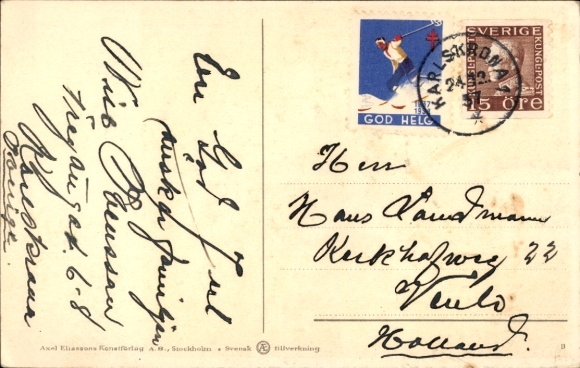 En God Jul
önskar familjen
Trägårdsg. 6-8
Karlskrona
GOD HELG
SVERIGE
KUNGL. POST
15 ÖRE
KARLSKRONA 1
24.12.
37
Herr
Hans Landmann
Kerkhofweg 22
Venlo
Holland.
Axel Eliassons Konstförlag A. B., Stockholm - Svensk AE tillverkning